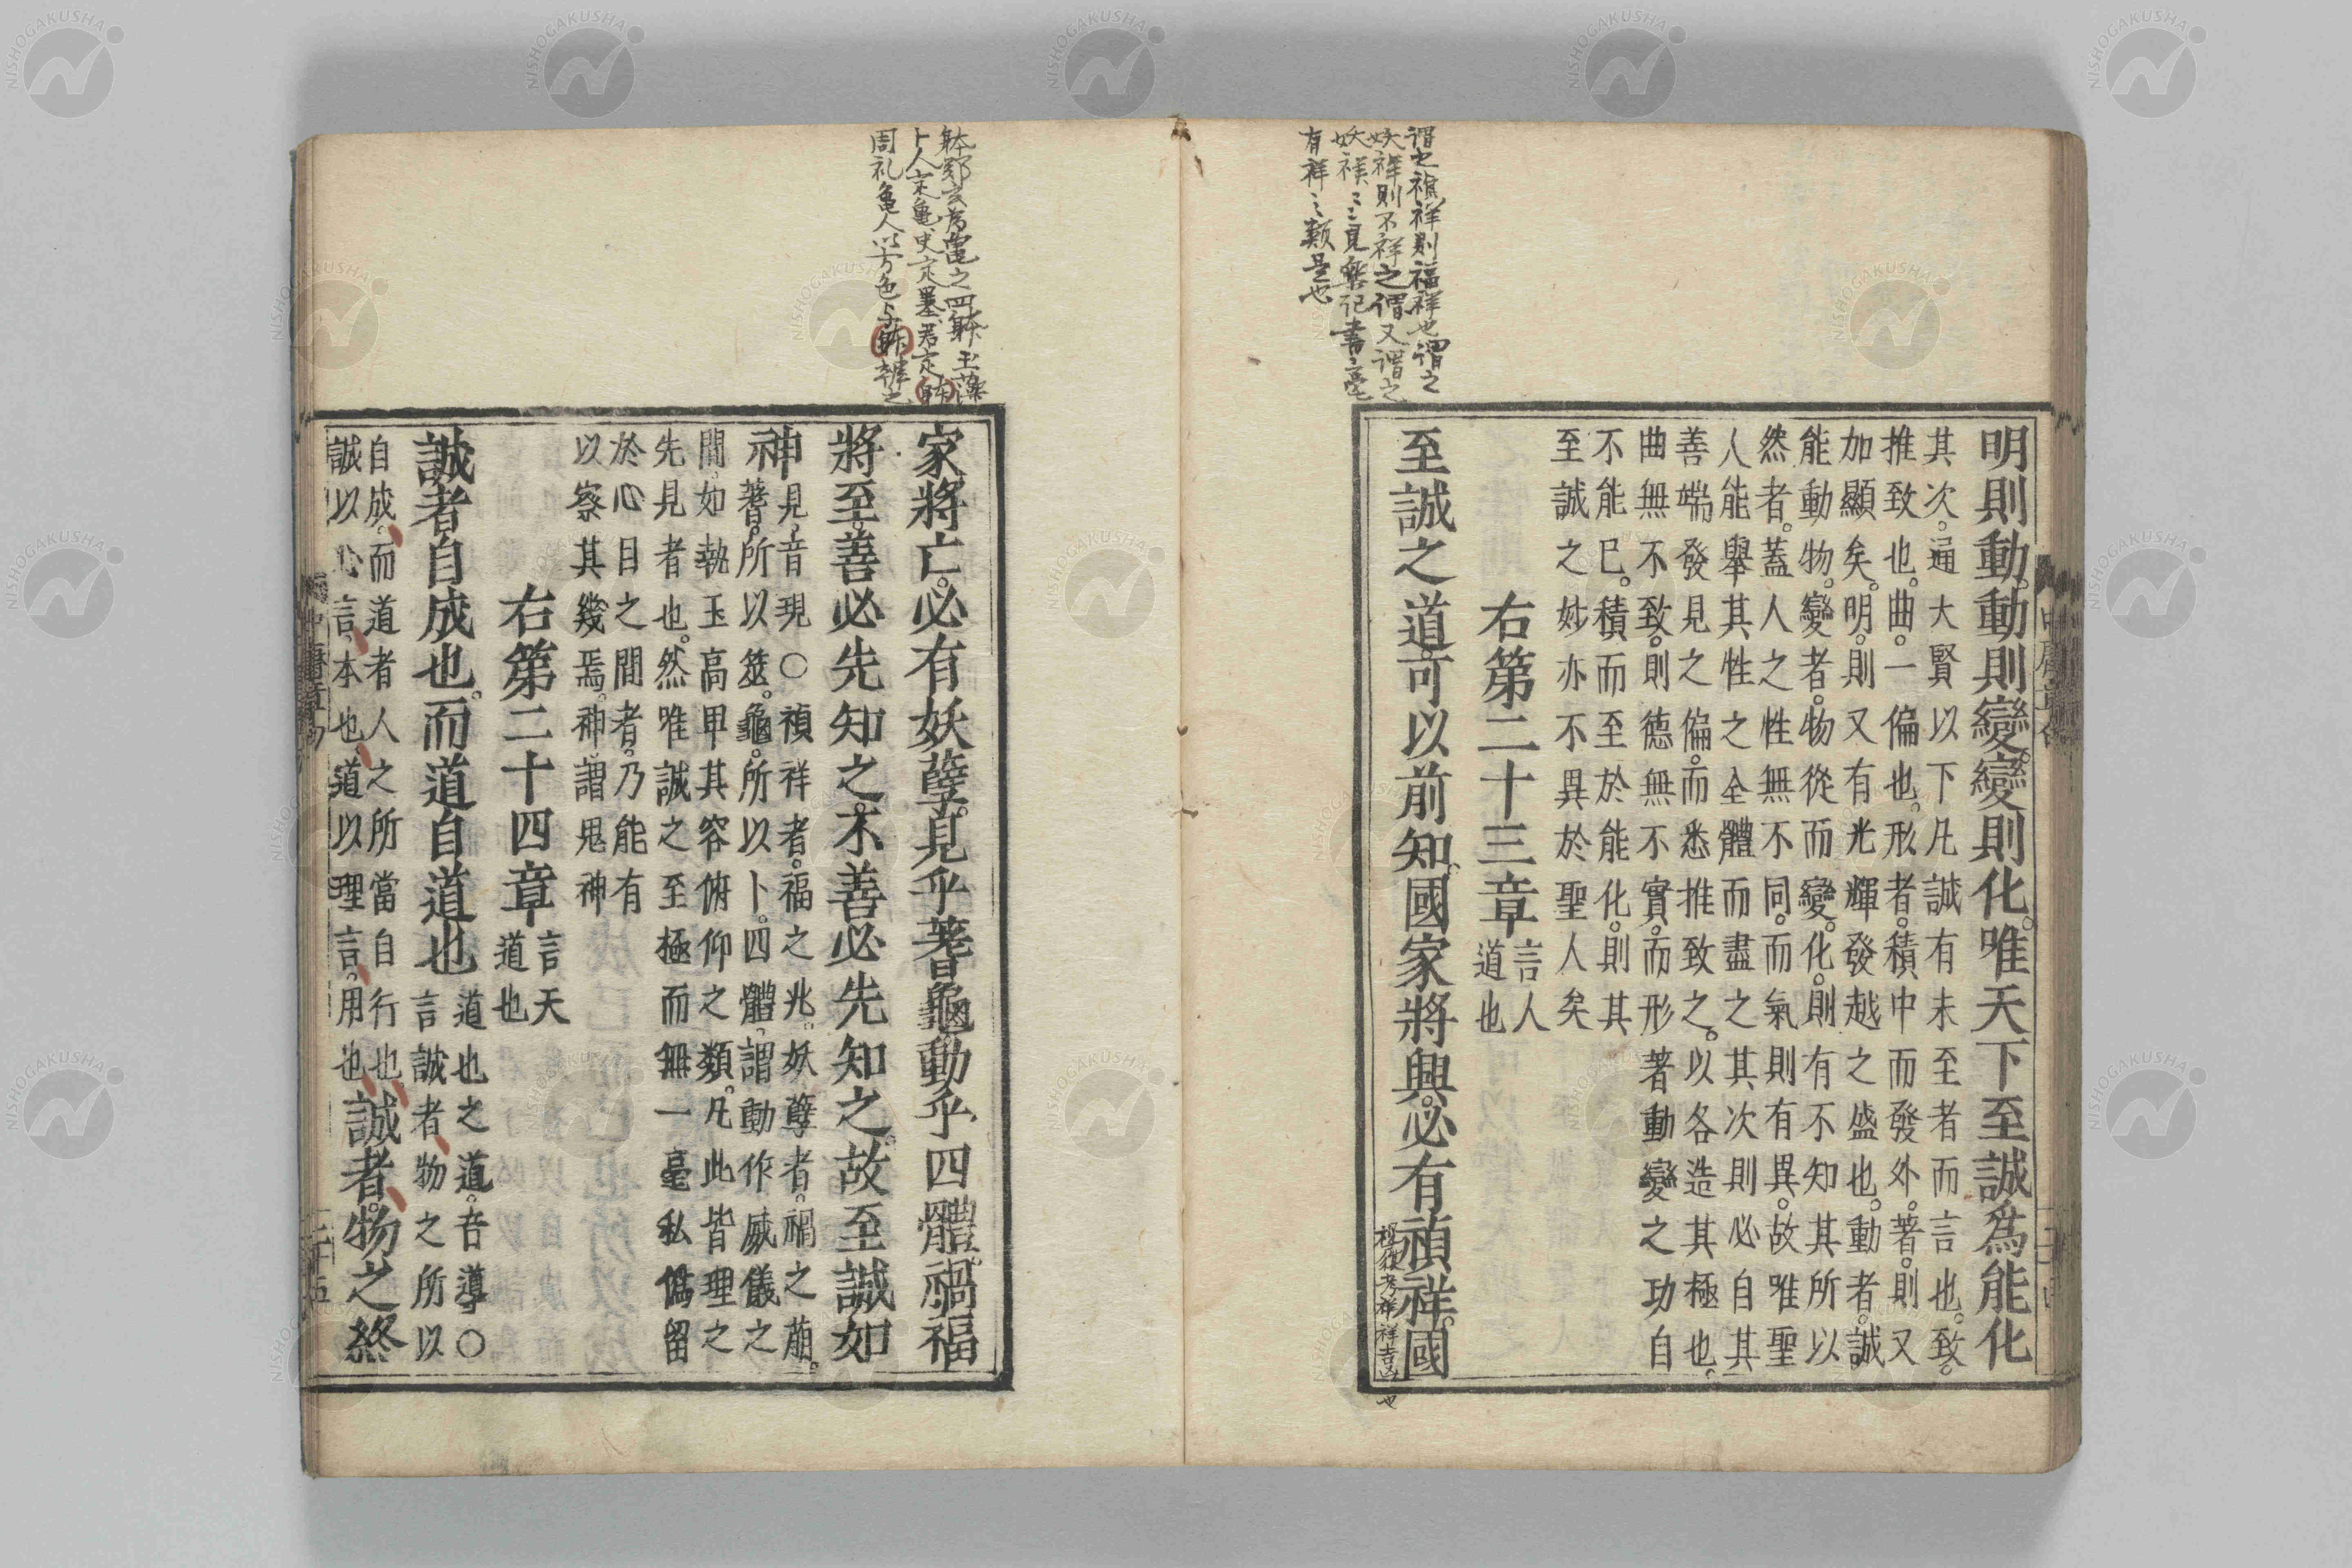 謂之禎祥則福祥也謂之
妖祥則不祥之謂又謂之
妖祥見樂記書亳
有祥〻類是也
明則動。動則變。變則化。唯天下至誠爲能化
其次。通大賢以下凡誠有未至者而言也。致。
推致也。曲。一偏也。形者。積中而發外。著。則又
加顯矣。明。則又有光輝發越之盛也。動者。誠
能動物。變者。物從而變。化。則有不知其所以
然者。蓋人之性無不同。而氣則有異。故唯聖
人能舉其性之全體而盡之其次則必自其
善端發見之偏。而悉推致之。以各造其極也。
曲無不致。則德無不實。而形著動變之功自
不能已。積而至於能化。則其
至誠之妙亦不異於聖人矣
右第二十三章 言人
道也
至誠之道。可以前知。國家將興。必有禎祥。國
躰鄭玄為龜之四躰玉藻
卜人定龜史定墨君定躰
周礼龜人以方色与躰辨之
家將亡。必有妖孽。見乎蓍龜。動乎四體。禍福
將至。善必先知之。不善必先知之。故至誠如
神 見。音現〇禎祥者。福之兆。妖孽者。禍之萠。
蓍。所以筮。龜。所以卜。四體。謂動作威儀之
間。如執玉高卑其容俯仰之類。凡此皆理之
先見者也。然唯誠之至極而無一毫私僞留
於心目之間者。乃能有
以察其幾焉。神。謂鬼神
右第二十四章 言天
道也
誠者自成也。而道自道也 道也之道。音導〇
言誠者物之所以
自成。而道者人之所當自行也
誠以心言。本也。道以理言。用也 誠者。物之終